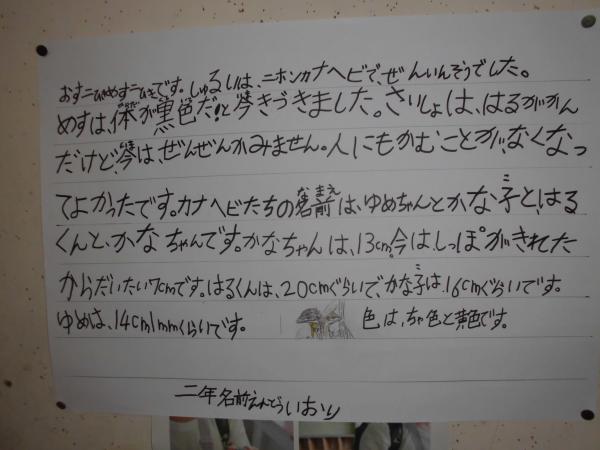 おす二ひきめす二ひきです。しゅるいは、ニホンカナヘビで、ぜんいんそうでした。
めすは、体が黒色だ!と今きづきました。さいしょは、はるがかん
だけど、今は、ぜんぜんかみません。人にもかむことが、なくなっ
てよかったです。カナヘビたちの名前は、ゆめちゃんとかな子と、はる
くんと、かなちゃんです。かなちゃんは、13cm。今は、しっぽがきれた
からだいたい7cmです。はるくんは、20cmぐらいで、かな子は、16cmぐらいです。
ゆめは、14cm1mmくらいです。 色は、ちゃ色と黄色です。
二年名前 いおり